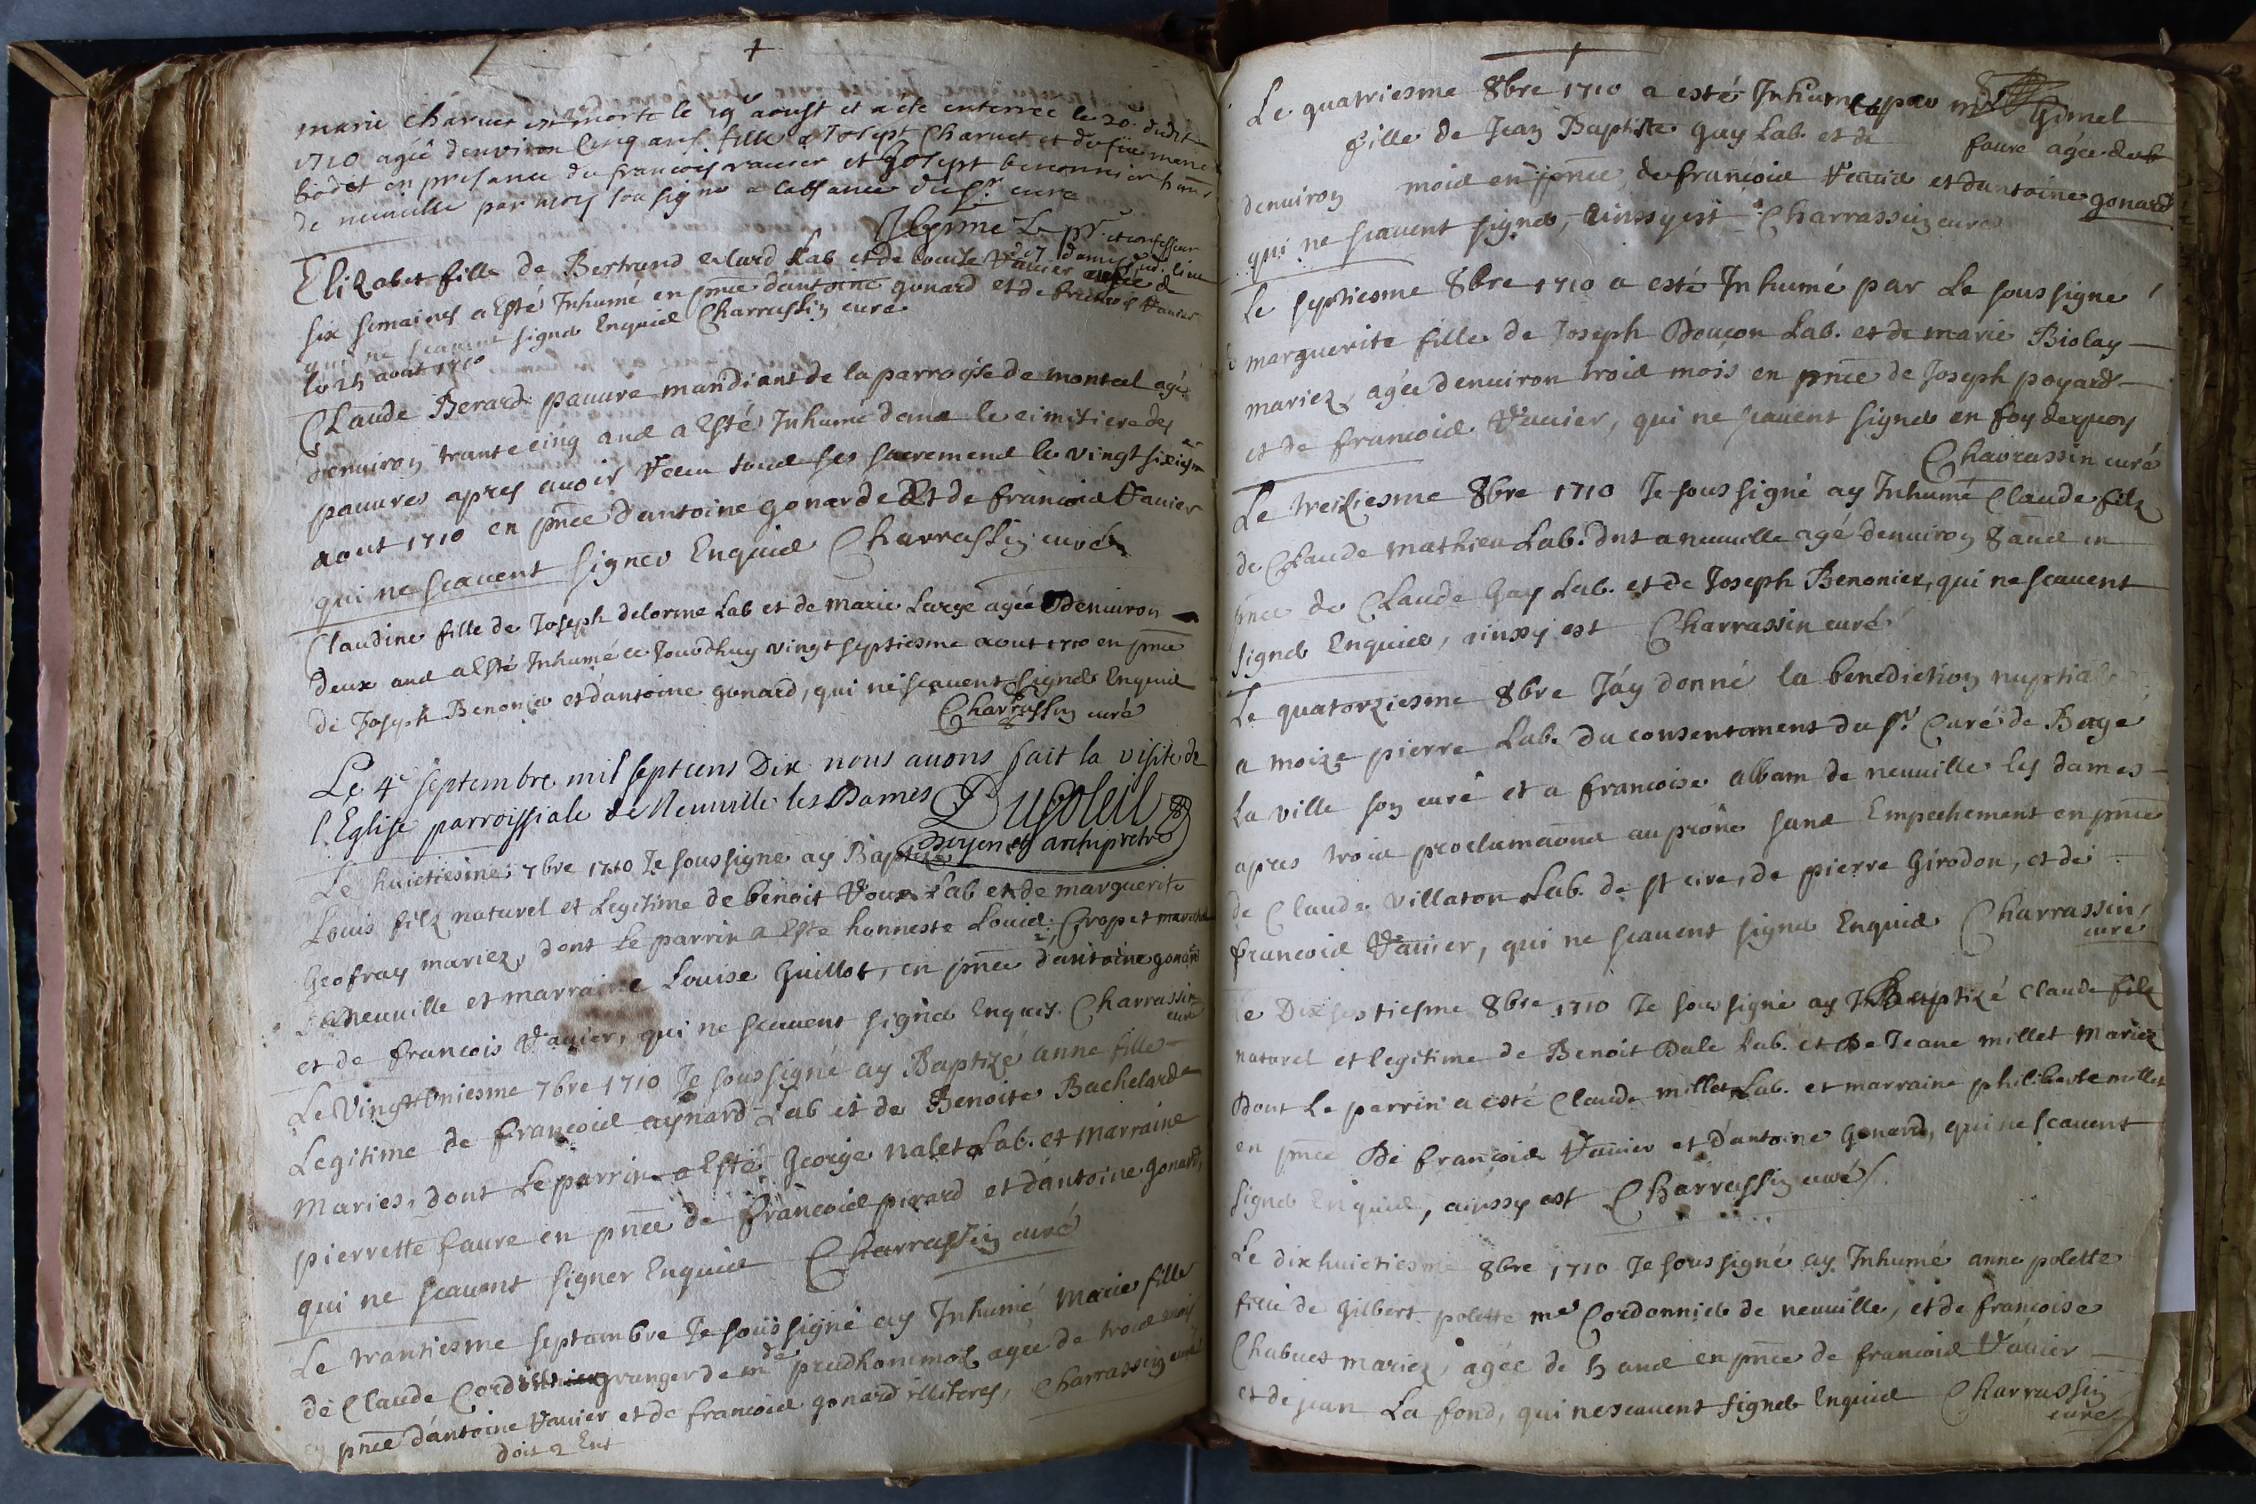 marie charvet est morte le 19 aoust et a ete enterree le 20 dudit
1710 agée denviron cinq ans fille a Josept Charvet et de fue marie
bodet en presance de francois vauier et Josept benonnier
de neuville par moy sousigne a labsance du sr cure
Elizabet fille de Bertrund Lab et de louise Vauier agée de
six semaines a Esté Inhumé en pnce dantoine gonard et de francois Vauier
qui ne scauent signer Enquid Charrassin curé
le 25 aout 1710
Claude Berard pauure mandiant de la parroisse de monteel agé
denuiron trante cinq and a Esté Inhumé dans le cimitiere des
pauures apres auoir receu toud ses sacremend le vingt sixiesm
aout 1710 en pnce dantoine gonard et de francoid Vauier
qui ne scauent signer Enquid Charrassin curé
Claudine fille de Joseph delorme Lab et de marie Large agée denuiron
deux and a Esté Inhumé ce Jourdhuy vingt septiesme aout 1710 en pnce
de Joseph Benonier et dantoine gonard, qui ne scauent signer Enquid
Charrassin curé
Le 4e septembre mil sept cens Dix nous auons fait la visite de
l'Eglise parroissiale de Neuuille les Dames Dusoleil
doyen et archipretre
Le huictiesme 7bre 1710 Je soussigne ay Baptizé
Louis filz naturel et Legitime de benoit Voux Lab et de marguerite
Geofray mariez, dont Le parrin a Esté honneste Louid Cropet marchd
a neuuille et marraine Louise Guillot, en pnce dantoine gonard
et de francois Vauier, qui ne scauent signer Enquis Charrassin
curé
Le Vingt Uniesme 7bre 1710 Je soussigné ay Baptizé anne fille
Legitime de francoid aynard Lab et de Benoite Bachelarde
Maries, dont Le parrin a Esté George nalet Lab. et marraine
pierrette faure en pnce de francoid pirard et dantoine gonard,
qui ne scauent signer Enquid Charrassin curé
Le trantiesme septambre Je soussigné ay Inhumé Marie fille
de Claude granger de mde prudhommoz agée de troid mois
en pnce dantoine Vauier et de francoid gonard illiteres, Charrassin curé
doit 2 Ent
Le quatriesme 8bre 1710 a esté Inhumé par mr Gimel
fille de Jean Baptiste guy Lab. et de faure agée de
denuiron moid en pnce de francoid Vauier et dantoine gonard
qui ne scauent signer, ainssy est Charrassin curé
Le septiesme 8bre 1710 a esté Inhumé par Le soussigné
marguerite fille de Joseph Doucon Lab. et de marie Biolay
mariez, agée denuiron troid mois en pnce de Joseph poyard
et de francoid Vauier, qui ne scauent signer en foy dequoy
Charrassin curé
Le treiziesme 8bre 1710 Je soussigné ay Inhumé Claude filz
de Claude mathieu Lab. dnt a neuuille agé denuiron 8 and en
pnce de Claude Gay Lab. et de Joseph Benonier, qui ne scauent
signer Enquid, ainssy est Charrassin curé
Le quatorziesme 8bre J'ay donné la benediction nuptiale
a moize pierre Lab. du consentament du sr Curé de Bagé
La ville son curé et a francoise albam de neuuille les dames
apres troid proclamaond au prône sand Empechement en pnce
de Claude Villaton Lab. de st cire, de pierre Girodon, et de
francoid Vauier, qui ne scauent signer Enquid Charrassin
curé
le Dix septiesme 8bre 1710 Je soussigné ay Baptizé Claude filz
naturel et legitime de Benoit Dale Lab. et De Jeane millet Mariez
Dont Le parrin a esté Claude millet Lab. et marraine philiberte millet
en pnce De francoid Vauier et dantoine Gonard, qui ne scauent
signer Enquid, ainssy est Charrassin curé
Le dixhuictiesme 8bre 1710 Je soussigné ay Inhumé anne polette
fille de Gilbert polette me Cordonnier de neuuille, et de francoise
Chabuet mariez, agée de 5 and en pnce de francoid Vauier
et de jean La fond, qui ne scauent signer Enquid Charrassin
curé